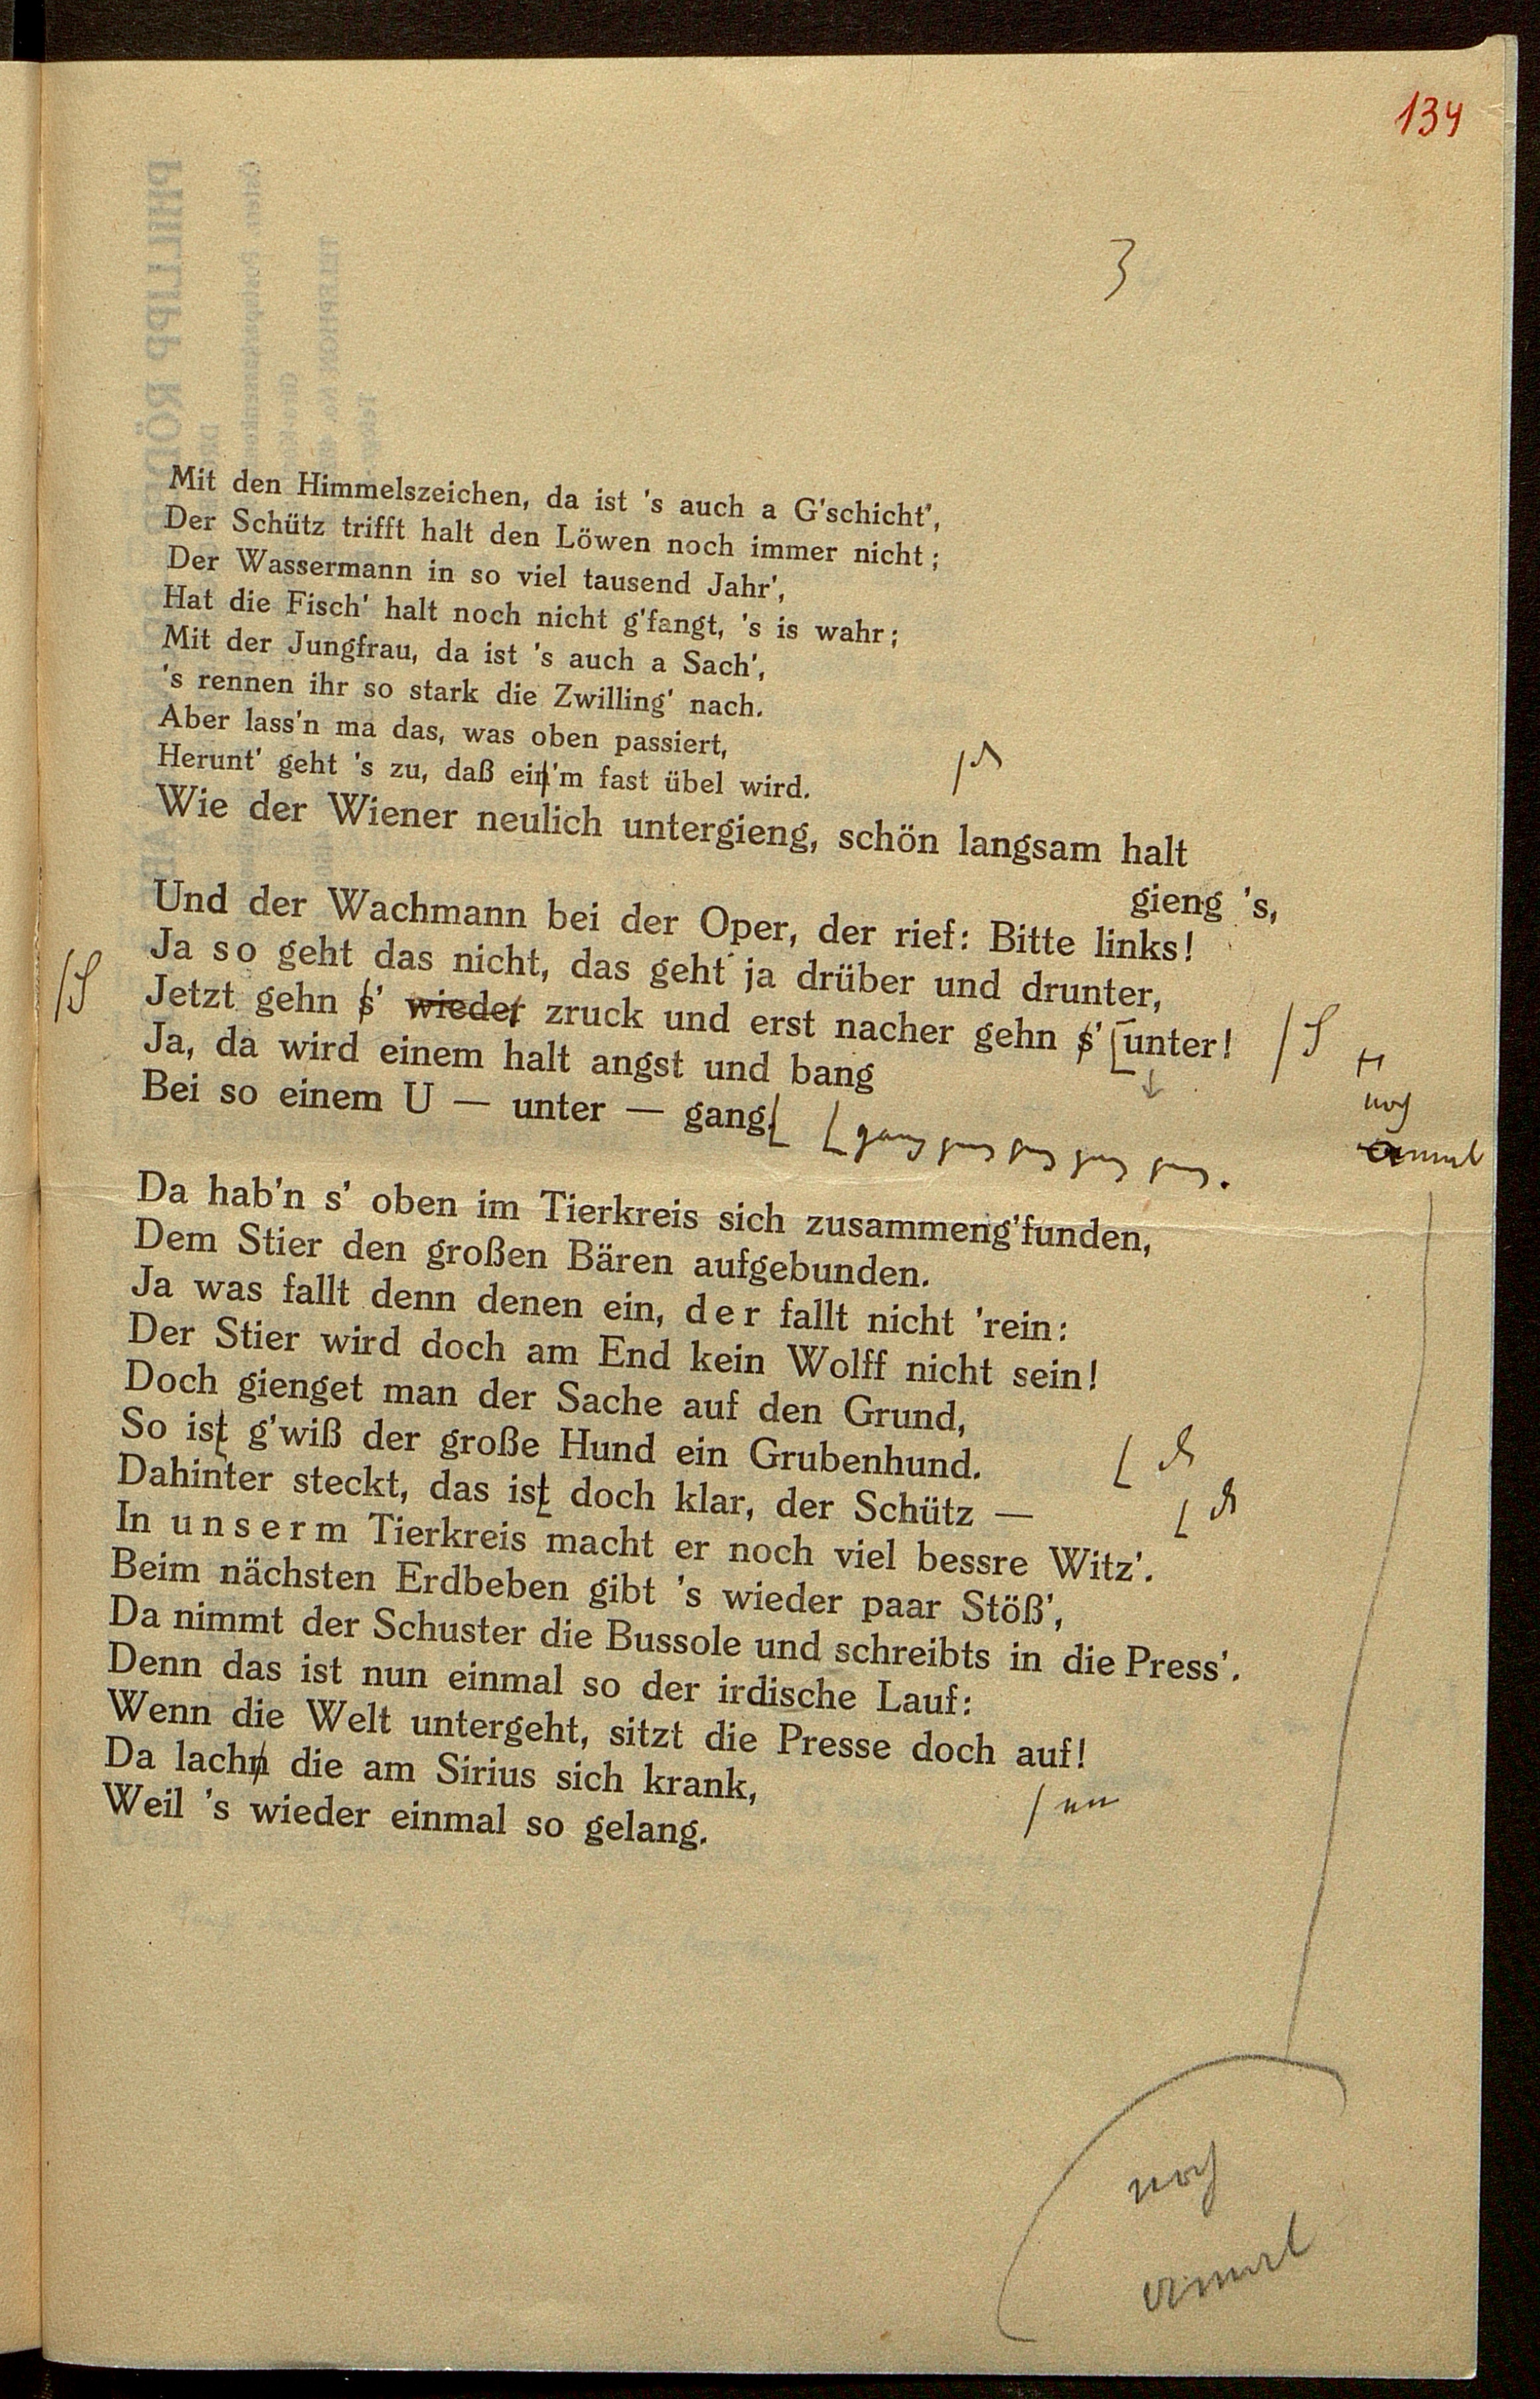 134
3
Mit den Himmelszeichen, da ist 's auch a G'schicht',
Der Schütz trifft halt den Löwen noch immer nicht;
Der Wassermann in so viel tausend Jahr',
Hat die Fisch' halt noch nicht g'fangt, 's is wahr;
Mit der Jungfrau, da ist 's auch a Sach',
's rennen ihr so stark die Zwilling' nach.
Aber lass'n ma das, was oben passiert,
Herunt' geht 's zu, daß ein'm fast übel wird.
Wie der Wiener neulich untergieng, schön langsam halt
gieng 's,
Und der Wachmann bei der Oper, der rief: Bitte links!
Ja so geht das nicht, das geht ja drüber und drunter,
Jetzt gehn s' wieder zruck und erst nacher gehn s' unter!
S
S
Ja, da wird einem halt angst und bang
noch
Bei so einem U — unter — gang.
gang gang gang gang gang.
einmal
Da hab'n s' oben im Tierkreis sich zusammeng'funden,
Dem Stier den großen Bären aufgebunden.
Ja was fallt denn denen ein, der fallt nicht 'rein:
Der Stier wird doch am End kein Wolff nicht sein!
Doch gienget man der Sache auf den Grund,
So ist g'wiß der große Hund ein Grubenhund.
Dahinter steckt, das ist doch klar, der Schütz —
In unserm Tierkreis macht er noch viel bessre Witz'.
Beim nächsten Erdbeben gibt 's wieder paar Stöß',
Da nimmt der Schuster die Bussole und schreibts in die Press'.
Denn das ist nun einmal so der irdische Lauf:
Wenn die Welt untergeht, sitzt die Presse doch auf!
Da lachn die am Sirius sich krank,
en
Weil 's wieder einmal so gelang.
noch
einmal